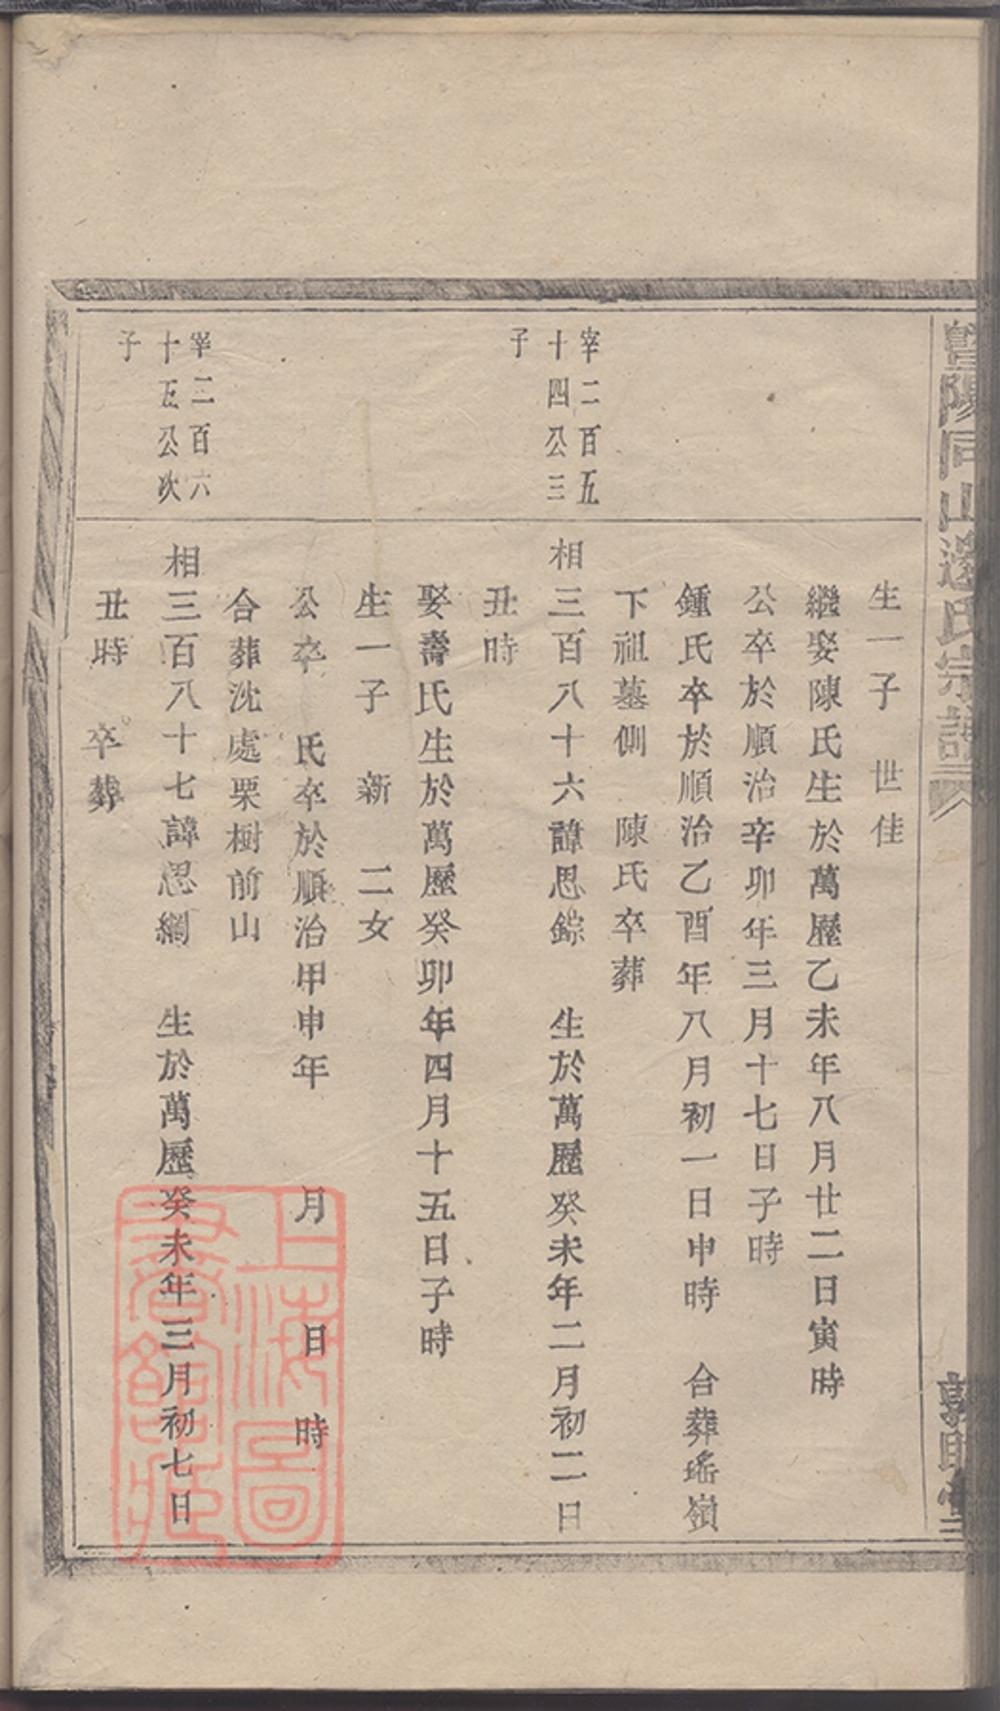 暨陽同山邊氏宗譜
敦睦堂
生一子　世佳
繼娶陳氏生於萬歷乙未年八月廿二日寅時
公卒於順治辛卯年三月十七日子時
鍾氏卒於順治乙酉年八月初一日申時　合葬瑤嶺
下祖墓側　陳氏卒葬
宰二百五
十四公三
子
相三百八十六諱思錝　生於萬歷癸未年二月初二日
丑時
娶壽氏生於萬歷癸卯年四月十五日子時
生一子　新　二女
公卒　氏卒於順治甲申年　月　日　時
合葬沈處栗樹前山
宰二百六
十五公次
子
相三百八十七諱思綱　生於萬歷癸未年三月初七日
丑時　卒葬
上海圖
書館藏